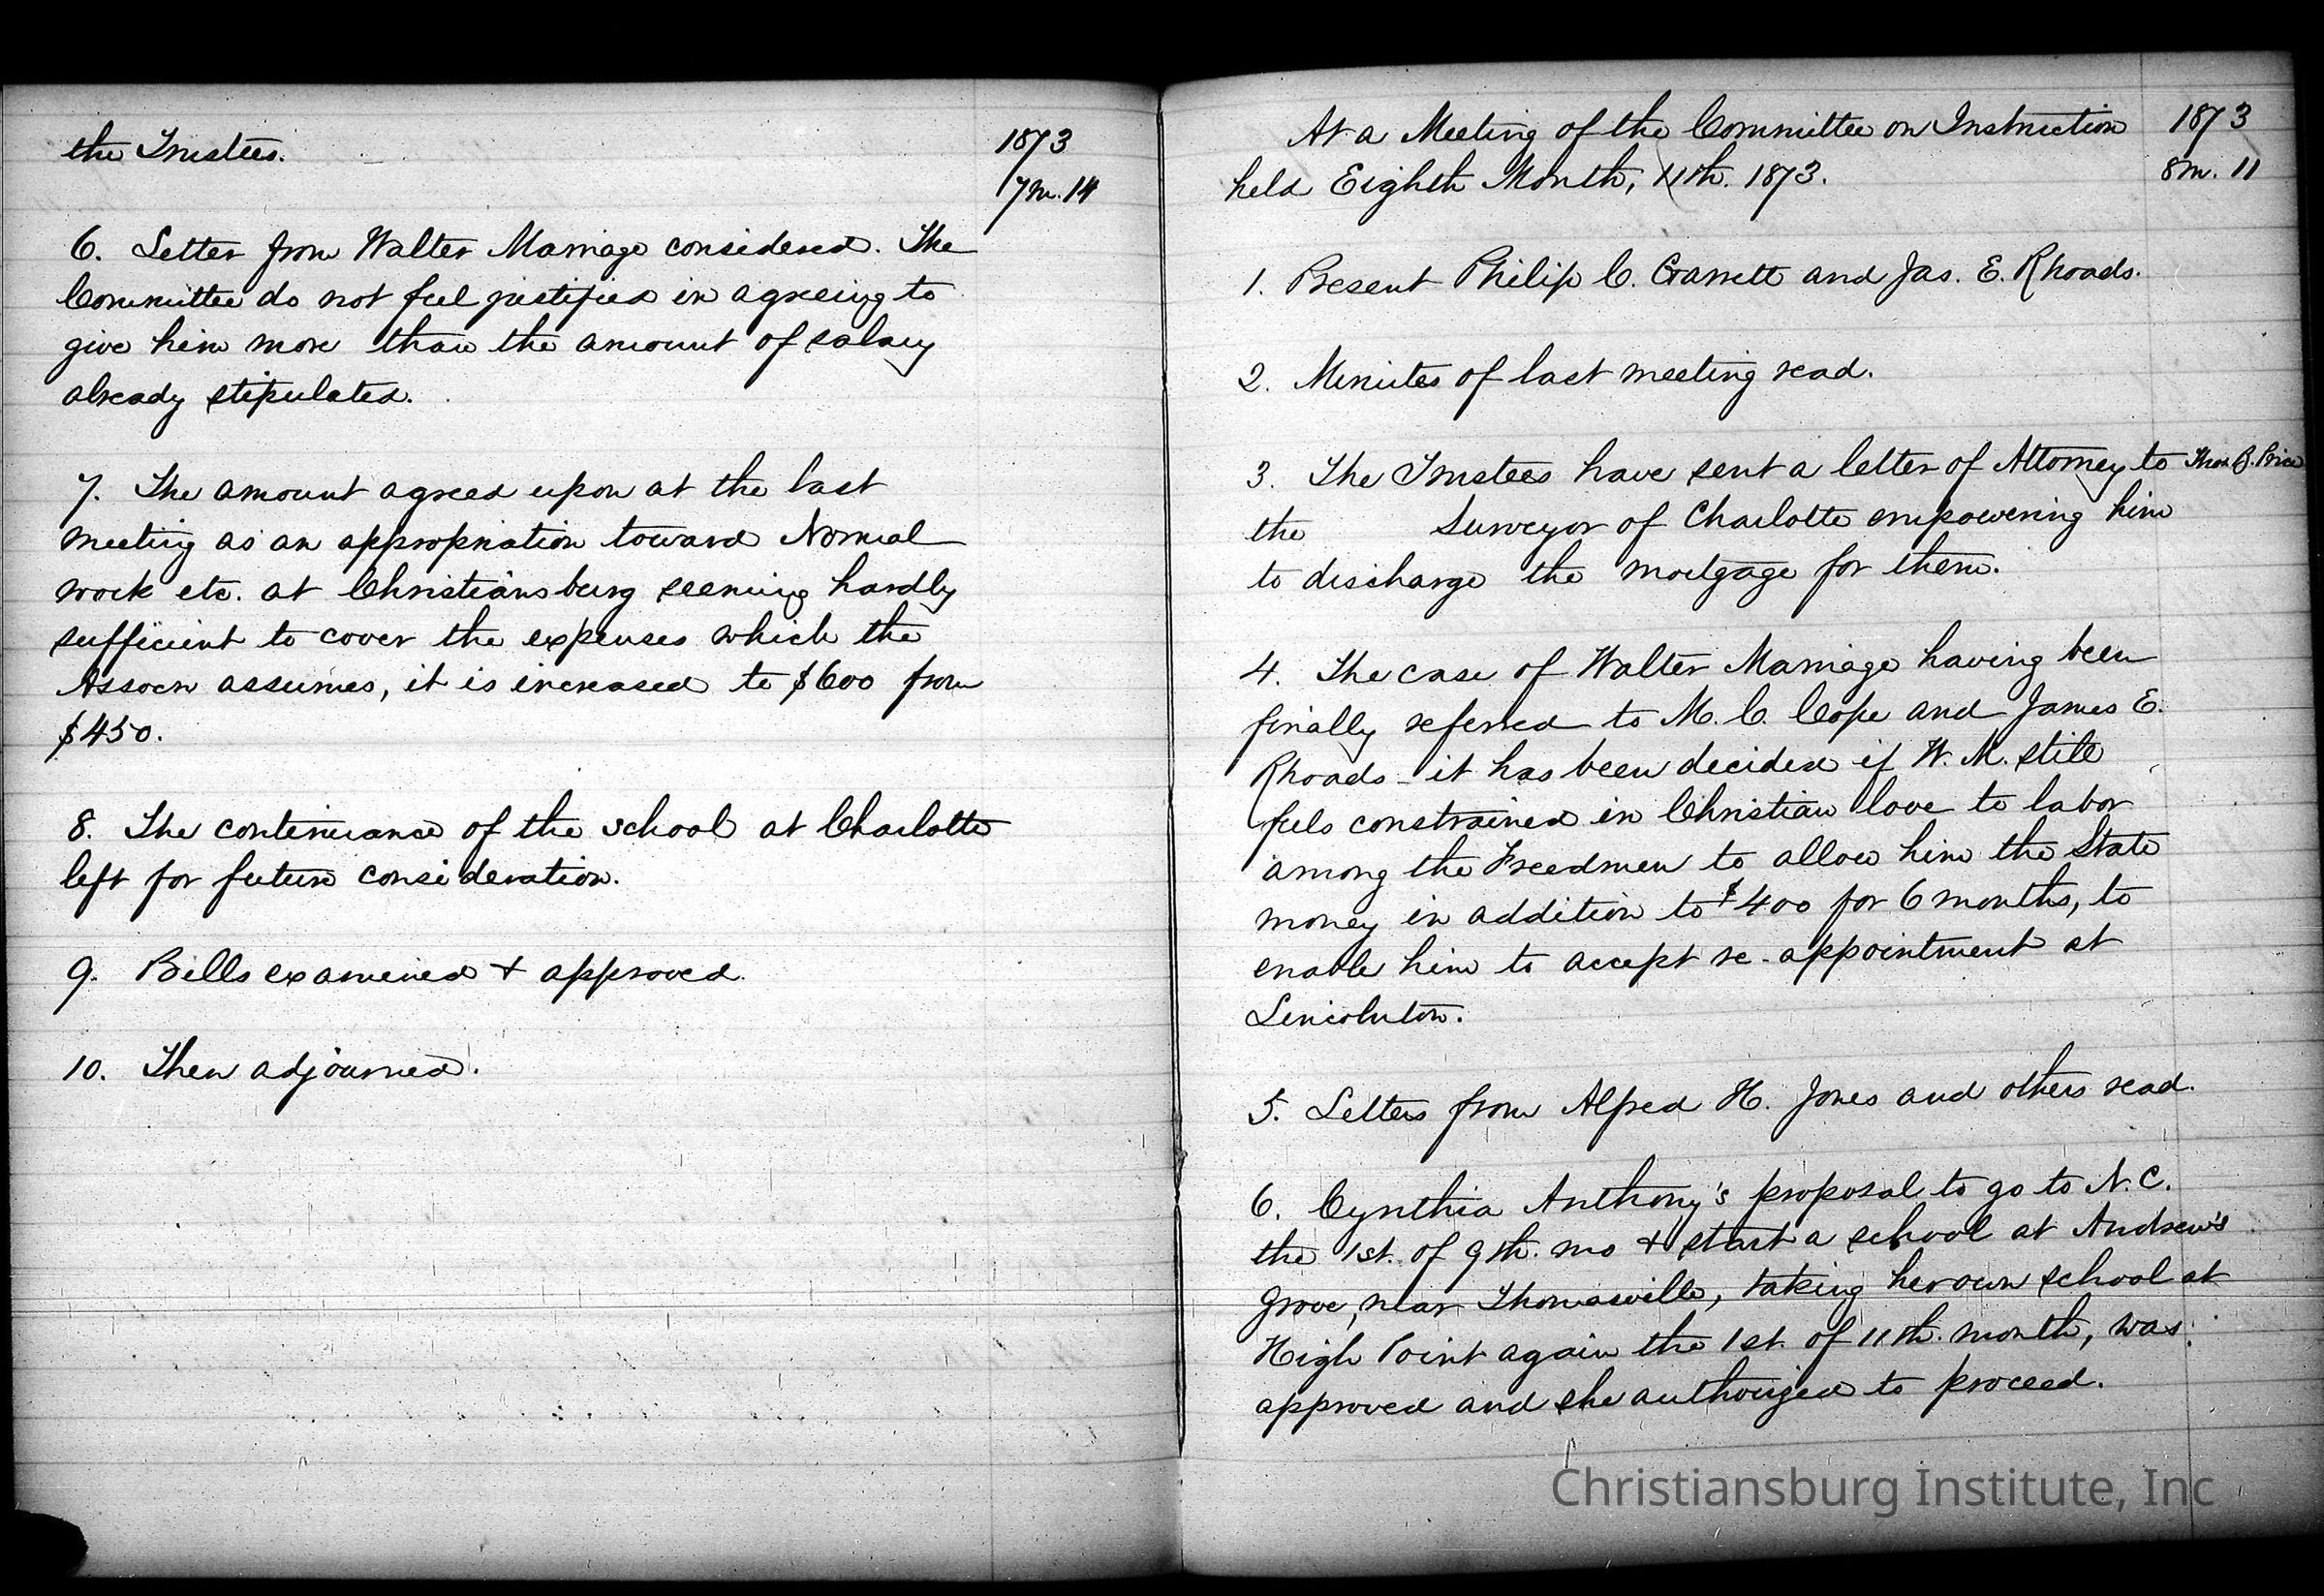 the Trustees.
1873
7m. 14
6. Letter from Walter Marriage considered. The
Committee do not feel justified in agreeing to
give him more than the amount of salary
already stipulated.
7. The amount agreed upon at the last
meeting as an appropriation toward Normal
work etc. at Christiansburg seeming hardly
sufficient to cover the expenses which the
Assocn assumes, it is increased to $600 from
$450.
8. The continuance of the school at Charlotte
left for future consideration.
9. Bills examined + approved.
10. Then adjourned.
At a Meeting of the Committee on Instruction
held Eighth Month, 11th. 1873.
1873
8m. 11
1. Present Philip C. Garrett and Jas. E. Rhoads.
2. Minutes of last meeting read.
3. The Trustees have sent a letter of Attorney to Thos. B. Price
the Surveyor of Charlotte empowering him
to discharge the mortgage for them.
4. The case of Walter Marriage having been
finally referred to M. C. Cope and James E.
Rhoads - it has been decided if W. M. still
feels constrained in Christian love to labor
among the Freedmen to allow him the State
money in addition to $400 for 6 months, to
enable him to accept re-appointment at
Lincolnton.
5. Letters from Alfred H. Jones and others read.
6. Cynthia Anthony's proposal to go to N.C.
the 1st. of 9th. mo + start a school at Andrew's
Grove, near Thomasville, taking her own school at
High Point again the 1st. of 11th. month, was
approved and she authorized to proceed.
Christiansburg Institute, Inc